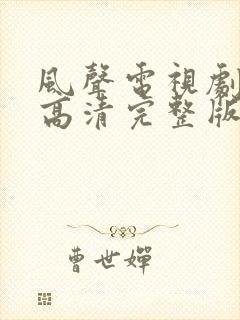 風聲電視劇
高清完整版
曹世嬋